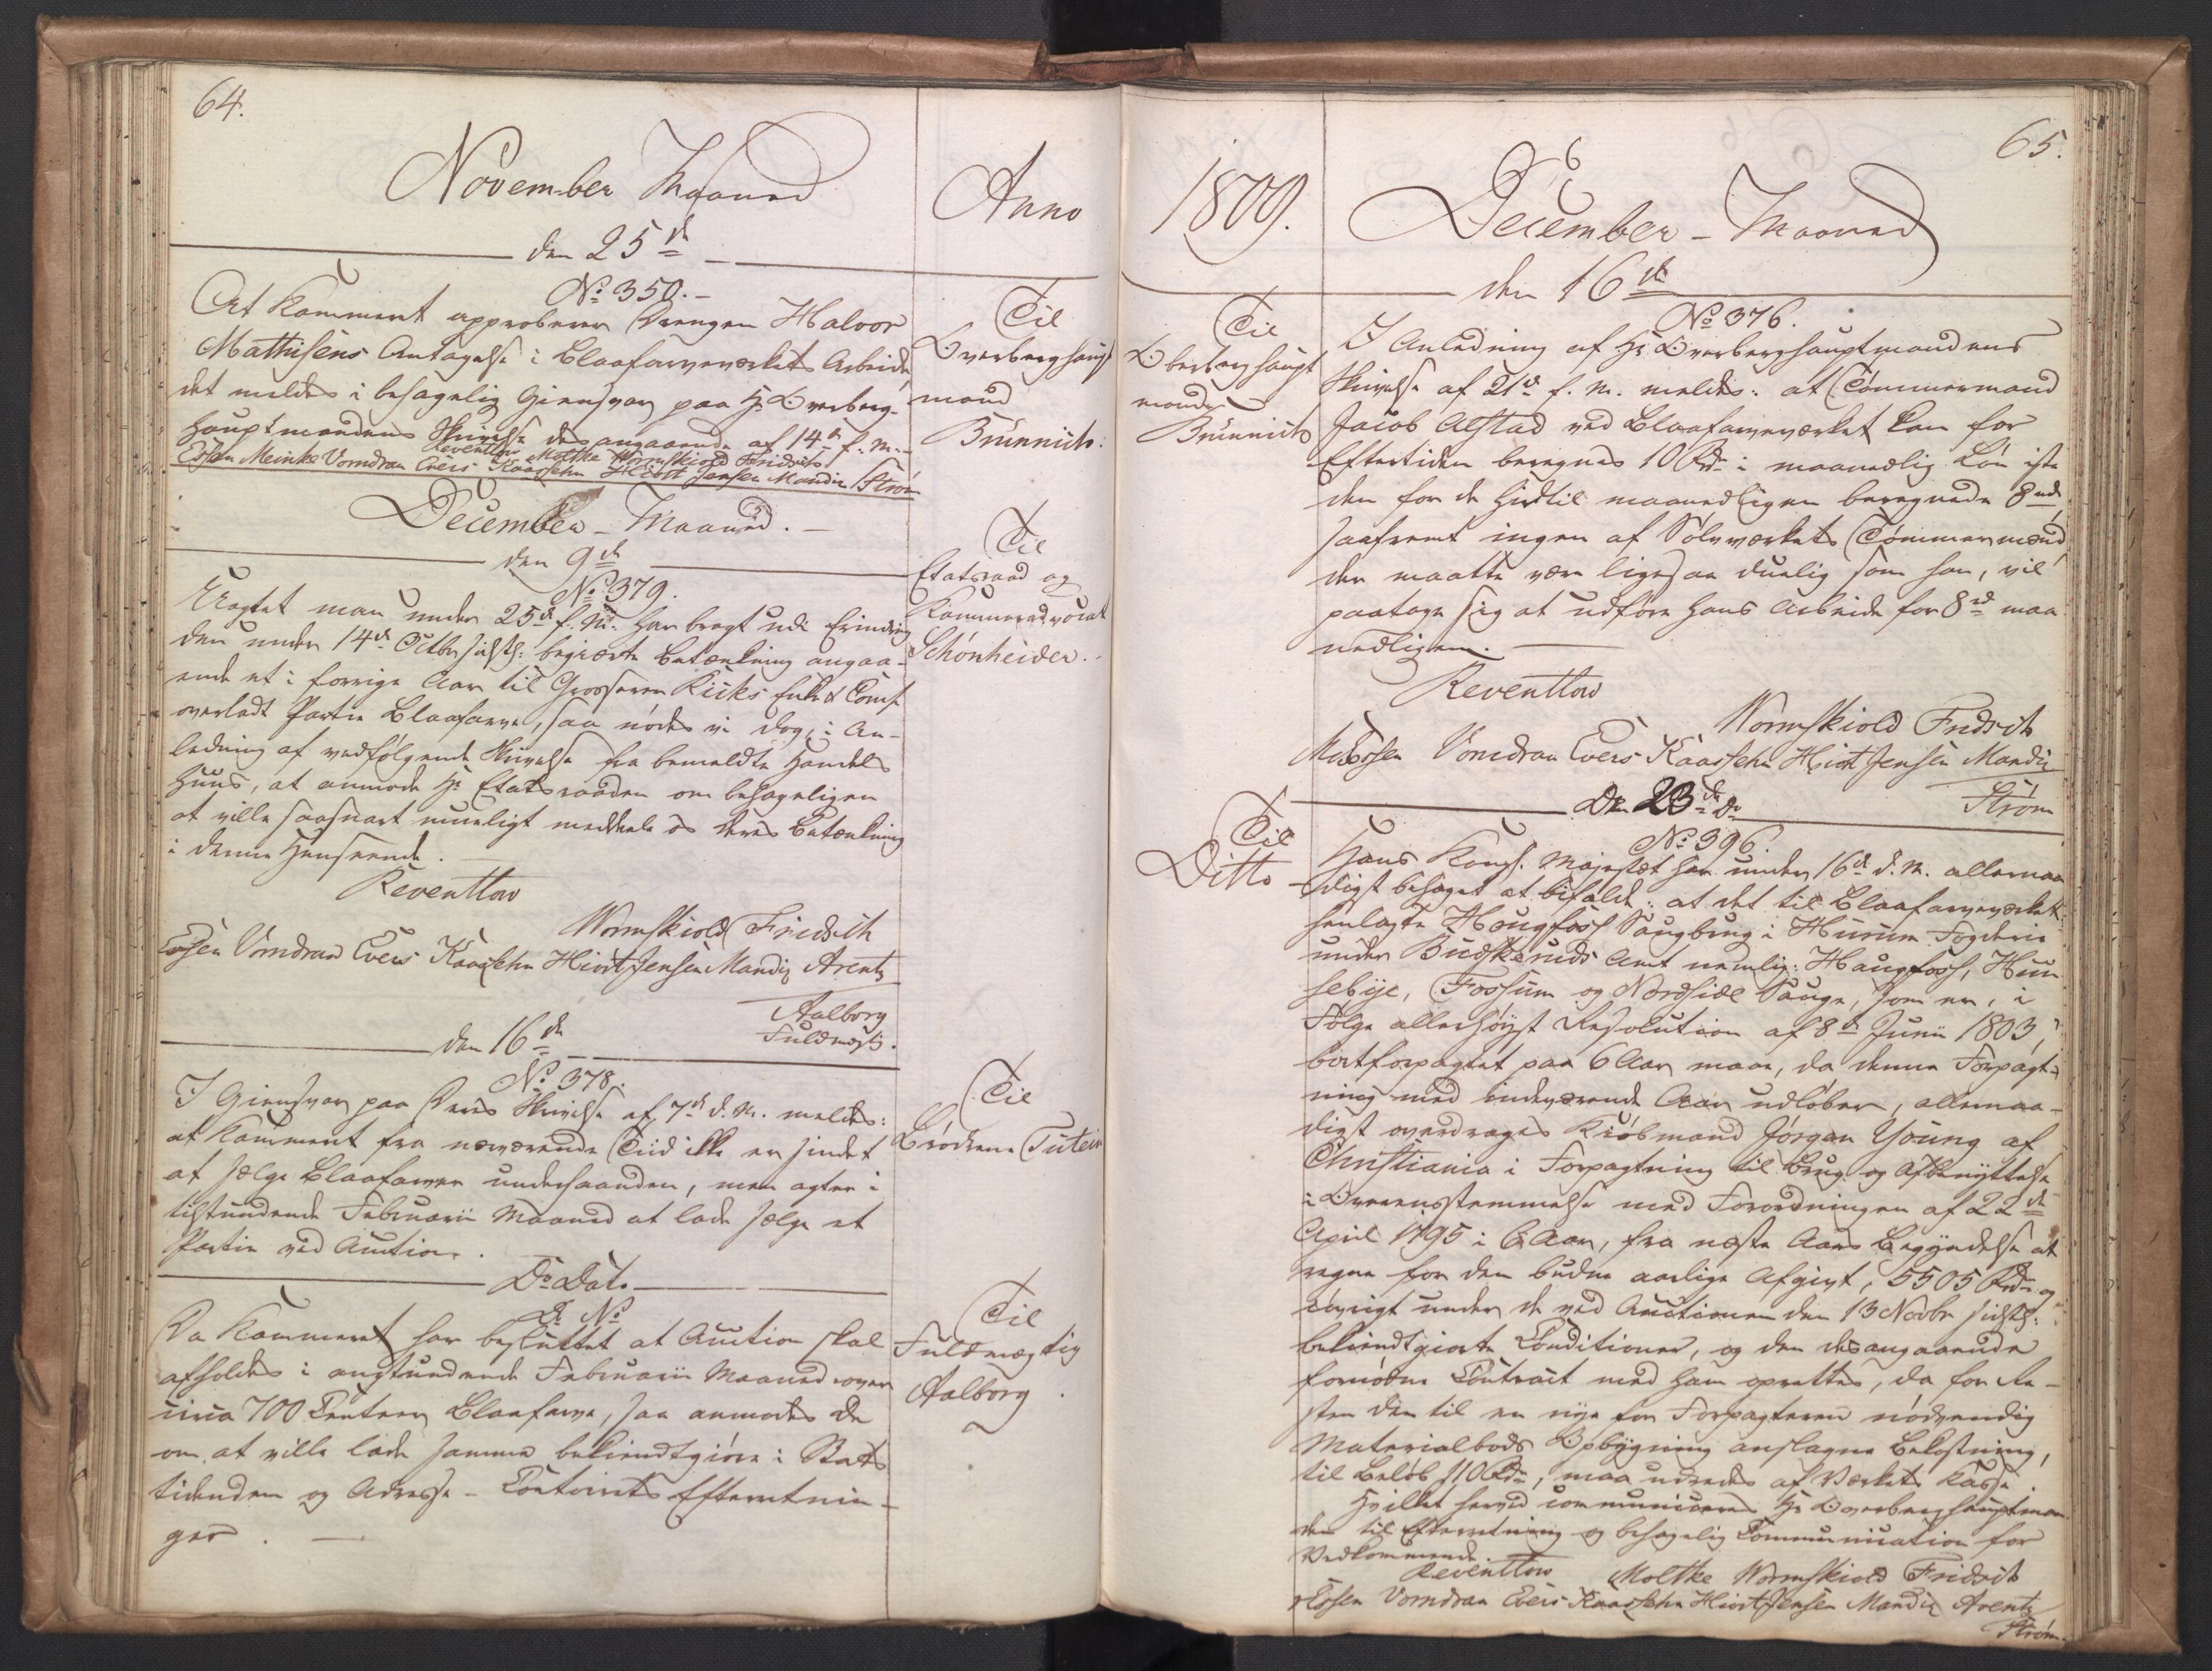 64.
November Maaned
Anno
den 25de
No 350.
At Kammeret approberer Drengen Halvor
Mathisens Antagelse i Blaafarveværkets Arbeide
det meldes i behagelig Giensvar paa Hr Overberg-
hauptmandens Skrivelse desangaaende af 14de f. M.
Reventlow Moltke Wormskiold Fridsch
Essen Meinke Vorndran Evers Kaassehn Hiort Jensen Mandix
Strøm
Til
Overberghaupt
mand
Brünnich.
December Maaned.
den 9de
No 379.
Uagtet man under 25de f. M. har bragt udi Erindring
den under 14de Octbr sidstl: begierte Betænkning angaa-
ende et i forrige Aar til Grosserer Kücks Enke & Comp
overladt Partie Blaafarve, saa nødes vi dog, i An-
ledning af vedfølgende Skrivelse fra bemeldte Handels
Huus, at anmode Hr Etatsraaden om behageligen
at ville saasnart mueligt meddeele os Deres Betænkning
i denne Henseende.
Reventlow
Wormskiold Fridsch
Essen Vorndran Evers Kaassehn Hiort Jensen Mandix Arentz
Aalborg
Fuldmægt.
Til
Etatsraad og
Kammeradvocat
Schönheider.
den 16de
No 378.
I Giensvar paa Deres Skrivelse af 7de d. M. meldes:
at Kammeret fra nærværende Tiid ikke er sindet
at sælge Blaafarver underhaanden, men agter i
tilstundende Februarii Maaned at lade sælge et
Partie ved Auction.
Til
Brødrene Tutein
Do Dato
Do No
Da Kammeret har besluttet at Auction skal
afholdes i anstundende Februarii Maaned over
circa 700 Centner Blaafarve, saa anmodes De
om at ville lade samme bekiendtgiøre i Stats
tidenden og Adresse-Contoirets Efterretnin-
ger.
Til
Fuldmægtig
Aalborg
65.
1809.
December-Maaned
den 16de
No 376.
Til
Oberberghaupt
mand
Brünnich
I Anledning af Hr Overberghauptmandens
Skrivelse af 21de f. M. meldes: at Tømmermand
Jacob Alstad ved Blaafarveværket kan for
Eftertiden beregnes 10 Rdr i maanedlig Løn iste
den for de hidtil maanedligen beregnede 8 rd,
saafremt ingen af Sølvværkets Tømmermænd,
der maatte være ligesaa duelig som han, vil
paatage sig at udføre hans Arbeide for 8 rd maa
nedligen.
Reventlow
Wormskiold Fridsch
Essen Vorndran Evers Kaassehn Hiort Jensen Mandix
Strøm
Den 23de Do
No 396.
Til
Ditto
Hans Kongl. Majestæt har under 16de d. M. allernaa
digst behaget at bifalde: at det til Blaafarveværket
henlagte Hougfoss Saugbrug i Hurum Fogderie
under Budskeruds Amt nemlig: Haugfoss, Huu
sebye, Fossum og Nordside Sauge, som er, i
Følge allerhøyst Resolution af 8de Junii 1803,
bortforpagtet paa 6 Aar maae, da denne Forpagt-
ning med indeværende Aar udløber, allernaa-
digst overdrages Kiøbmand Jørgen Young af
Christiania i Forpagtning til Brug og Afbenyttelse
i Overensstemmelse med Forordningen af 22de
April 1795 i 6 Aar, fra næste Aars Begyndelse at
regne for den budne aarlige Afgivt, 5505 Rdr og
iøvrigt under de ved Auctionen den 13 Novbr sidstl:
bekiendtgiorte Conditioner, og den desangaaende
fornødne Contract med ham oprettes, da for Re-
sten den til en nye for Forpagteren nødvendig
Materialbods Opbygning anslagne Bekostning,
til Beløb 110 Rdr, maa udredes af Værkets Kasse.
Hvilket herved communiceres Hr Overberghauptman
den til Efterretning og behagelig Communication for
Vedkommende.
Reventlow Moltke Wormskiold Fridsch
Essen Vorndran Evers Kaassehn Hiort Jensen Mandix Arentz
Strøm.